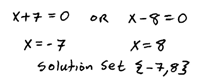 x+7=0 OR x-8=0
x=-7 x=8
Solution set {-7,8}